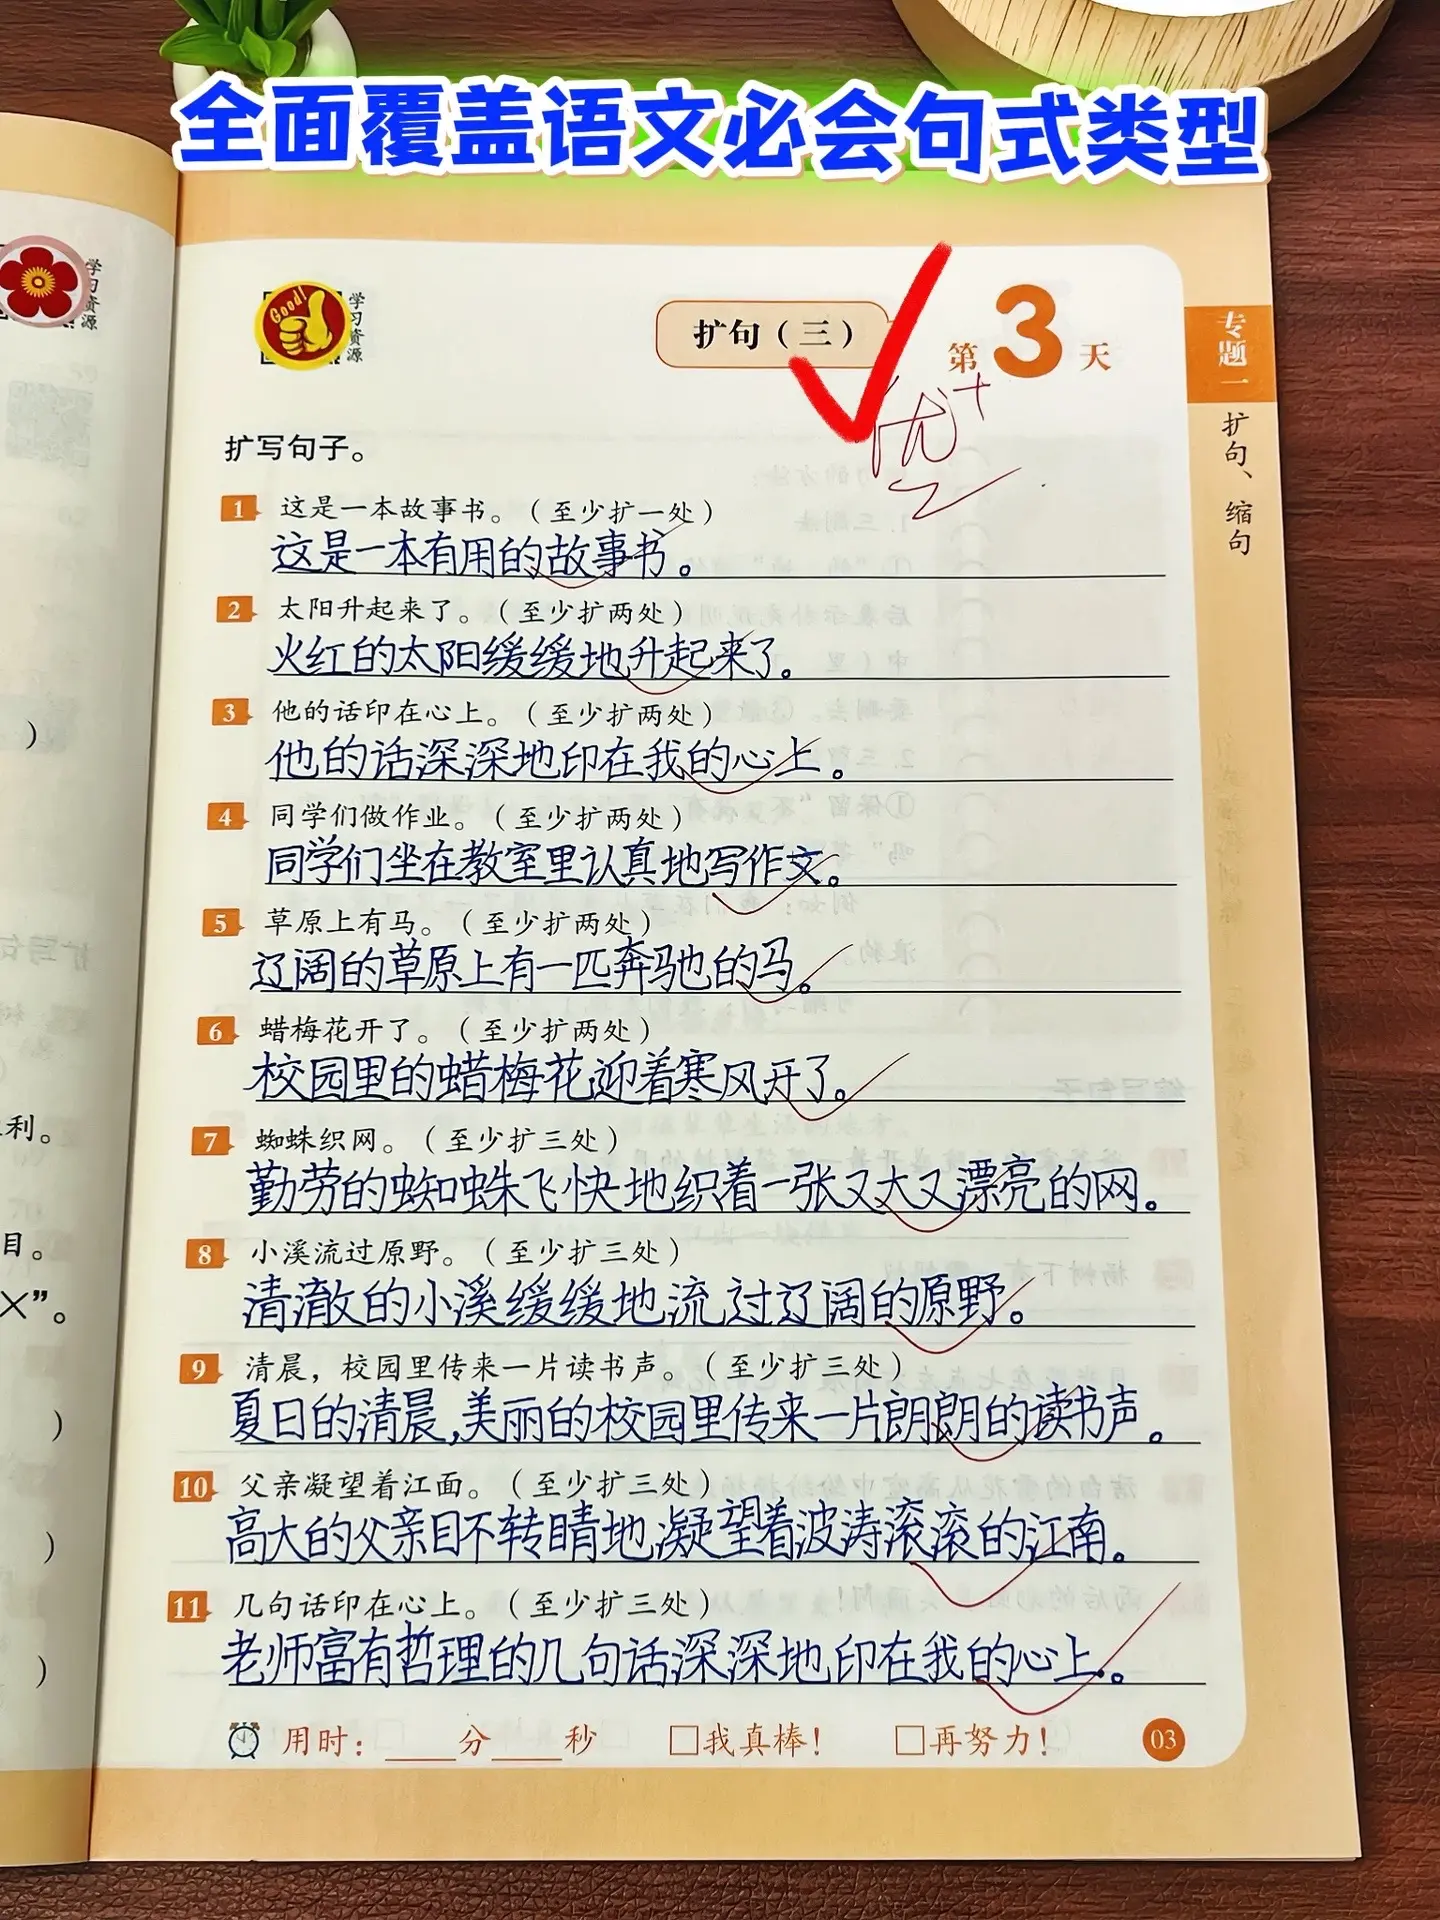 全面覆盖语文必会句式类型
学习资源
Good!
学习资源
扩句（三）
第3天
优+
专题一
扩句、缩句
扩写句子。
1 这是一本故事书。（至少扩一处）
这是一本有用的故事书。
2 太阳升起来了。（至少扩两处）
火红的太阳缓缓地升起来了。
3 他的话印在心上。（至少扩两处）
他的话深深地印在我的心上。
4 同学们做作业。（至少扩两处）
同学们坐在教室里认真地写作文。
5 草原上有马。（至少扩两处）
辽阔的草原上有一匹奔驰的马。
6 蜡梅花开了。（至少扩两处）
校园里的蜡梅花迎着寒风开了。
7 蜘蛛织网。（至少扩三处）
勤劳的蜘蛛飞快地织着一张又大又漂亮的网。
8 小溪流过原野。（至少扩三处）
清澈的小溪缓缓地流过辽阔的原野。
9 清晨，校园里传来一片读书声。（至少扩三处）
夏日的清晨,美丽的校园里传来一片朗朗的读书声。
10 父亲凝望着江面。（至少扩三处）
高大的父亲目不转睛地凝望着波涛滚滚的江南。
11 几句话印在心上。（至少扩三处）
老师富有哲理的几句话深深地印在我的心上。
用时：____分____秒 □我真棒！ □再努力！
03
）
利。
目。
×”。
）
）
）